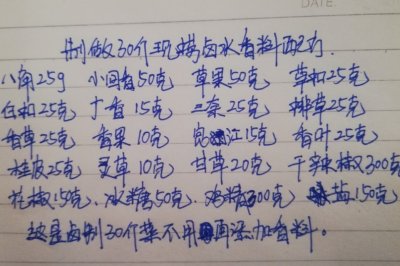 DATE
制做30个现捞卤水香料配方.
八角25g 小回香50克 草果50克 草扣25克
白扣25克 丁香15克 三奈25克 排草25克
香草25克 香果10克 宛江15克 香叶25克
桂皮25克 灵草10克 甘草20克 干辣椒300克
花椒150克、冰糖50克、鸡精300克 盐150克
这是卤制30个菜不用再添加香料。